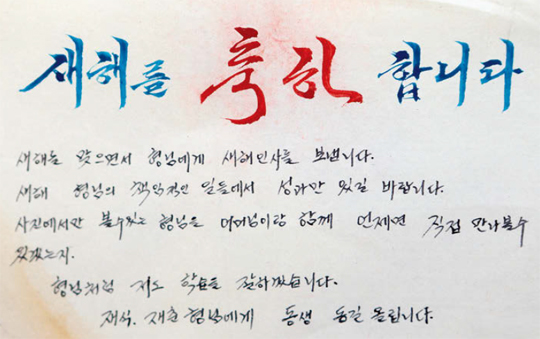 새해를 축하 합니다
새해를 맞으면서 형님에게 새해인사를 보냅니다.
새해 형님의 책임적인 일들에서 성과만 있길 바랍니다.
사진에서만 볼수있는 형님을 어머님이랑 함께 언제면 직접 만나볼수
있겠는지.
형님처럼 저도 학습을 잘하겠습니다.
재석. 재춘 형님에게 동생 동길 올립니다.